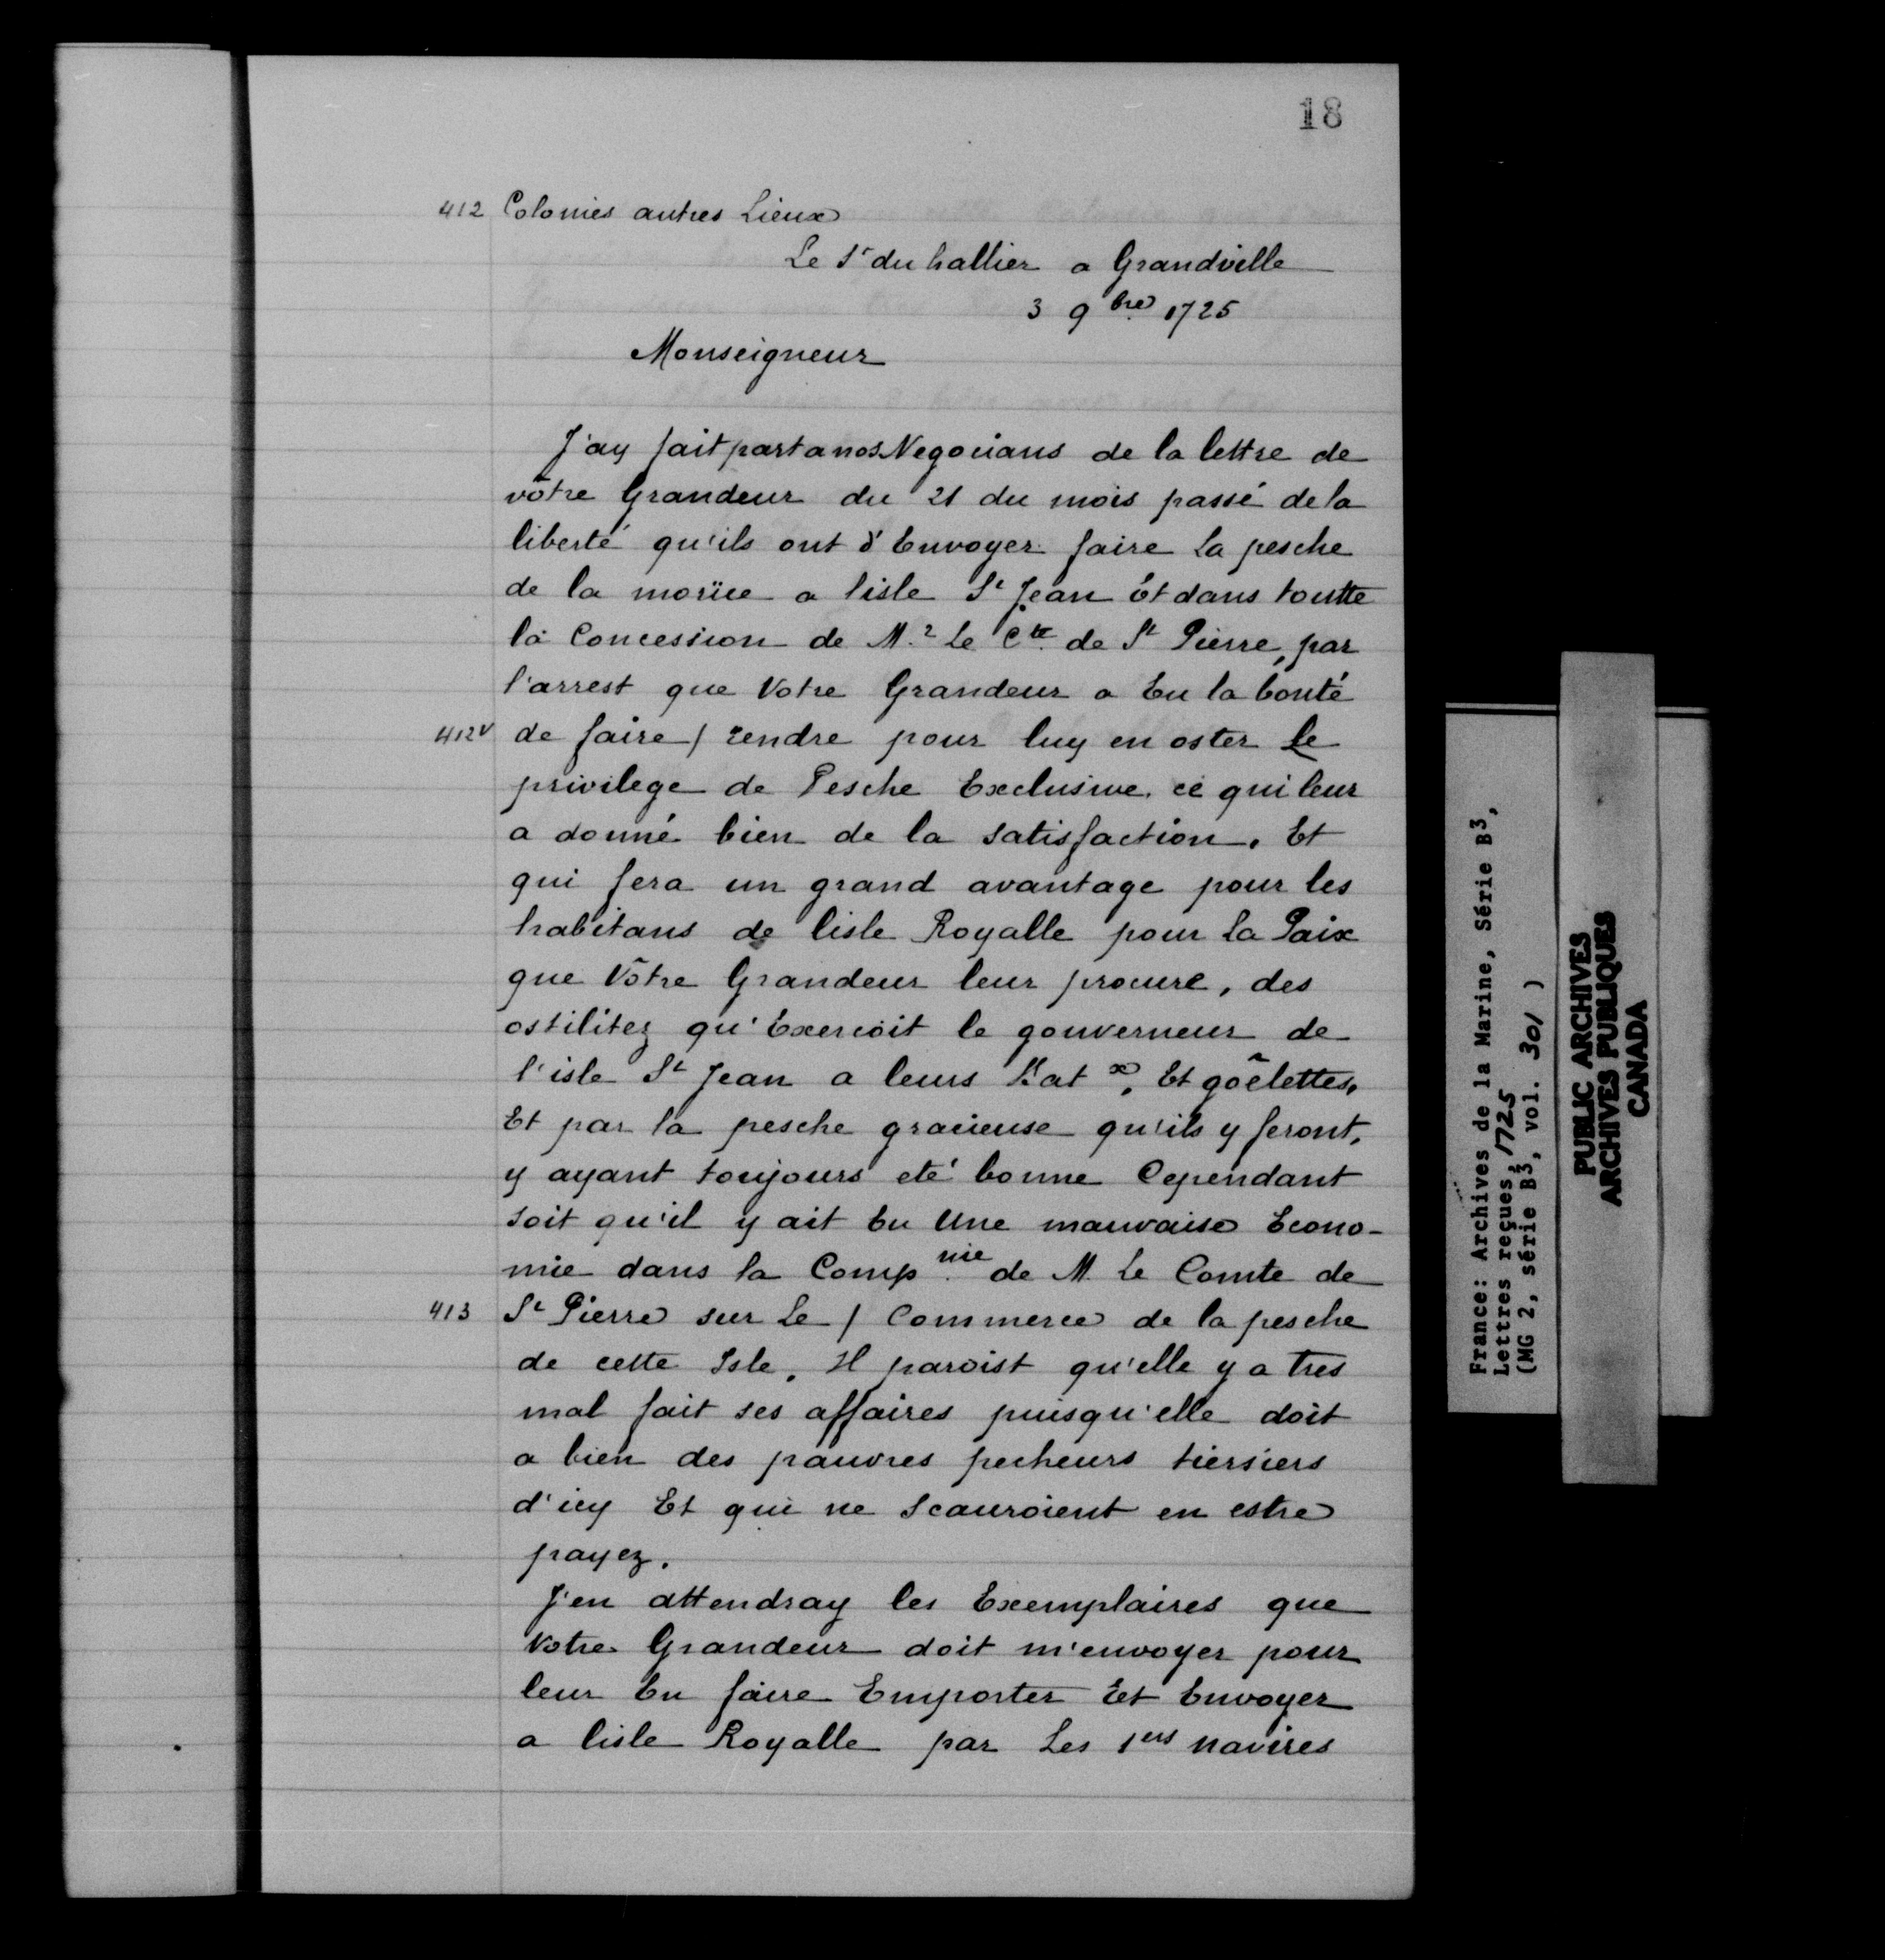 18
412 Colonies autres Lieux
Le Sr du hallier a Grandville
3 9bre 1725
Monseigneur
J'ay fait part a nos Negocians de la lettre de
vôtre Grandeur du 21 du mois passé de la
liberté qu'ils ont d'Envoyer faire la pesche
de la moriie a lisle St Jean Et dans toutte
la Concession de Mr Le Cte de St Pierre, par
l'arrest que Votre Grandeur a Eu la bonté
412v de faire / rendre pour luy en oster Le
privilege de Pesche Exclusive. ce qui leur
a donné bien de la satisfaction. Et
qui fera un grand avantage pour les
habitans de lisle Royalle pour la Paix
que Vôtre Grandeur leur procure, des
ostilitez qu'Exercoit le gouverneur de
l'isle St Jean a leurs Batx, Et goêlettes,
Et par la pesche gracieuse qu'ils y feront,
y ayant toujours eté bonne Cependant
soit qu'il y ait Eu Une mauvaise Econo-
mie dans la Compnie de M. Le Comte de
413 St Pierre sur Le / Commerce de la pesche
de cette Isle. Il paroist qu'elle y a tres
mal fait ses affaires puisqu'elle doit
a bien des pauvres pecheurs tiersiers
d'icy Et qui ne scauroient en estre
payez.
J'en attendray les Exemplaires que
Votre Grandeur doit m'envoyer pour
leur En faire Emporter Et Envoyer
a lisle Royalle par Les 1ers navires
France: Archives de la Marine, Série B3,
Lettres reçues, 1725
(MG 2, série B3, vol. 301 )
PUBLIC ARCHIVES
ARCHIVES PUBLIQUES
CANADA